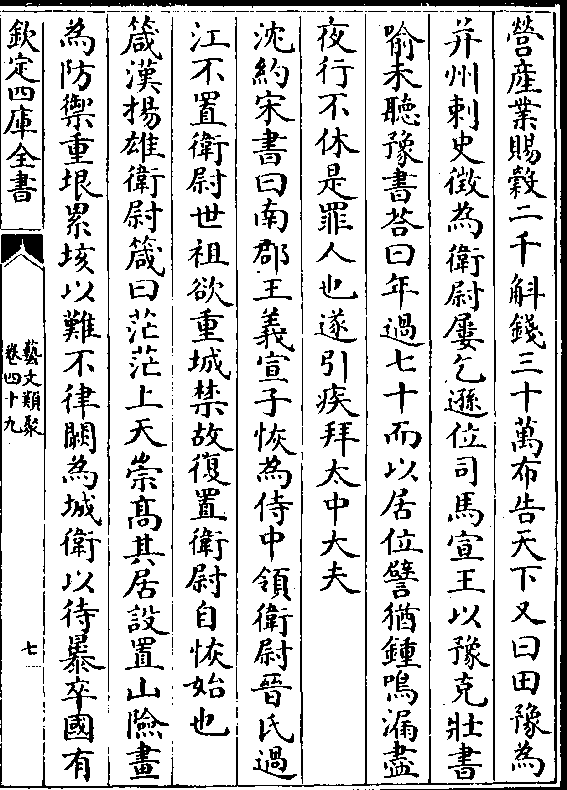 營産業賜榖二千斛錢三十萬布告天下又曰田豫為
并州刺史徴為衛尉屢乞遜位司馬宣王以豫克壯書
喻未聽豫書荅曰年過七十而以居位譬猶鍾鳴漏盡
夜行不休是罪人也遂引疾拜太中大夫
沈約宋書曰南郡王義宣子恢為侍中領衛尉晉氏過
江不置衛尉世祖欲重城禁故復置衛尉自恢始也
箴漢揚雄衛尉箴曰茫茫上天崇髙其居設置山險畫
為防禦重垠累垓以難不律闕為城衛以待暴卒國有
欽定四庫全書
藝文類聚
卷四十九
七